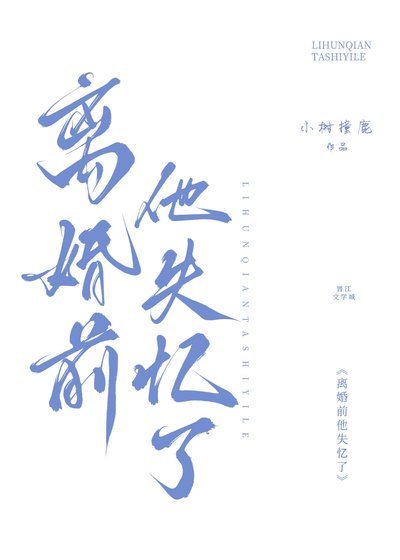 离婚前
他失忆了
LIHUNQIANTASHIYILE
LIHUNQIAN
TASHIYILE
小树撞鹿
作品
晋江
文学城
《离婚前他失忆了》